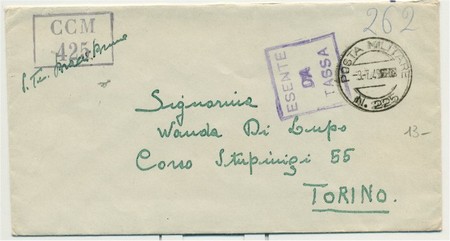 CCM
425
262
ESENTE
DA
TASSA
POSTA MILITARE
N. 225
Signorina
Wanda Di Lupo
Corso Stupinigi 55
TORINO.
13-